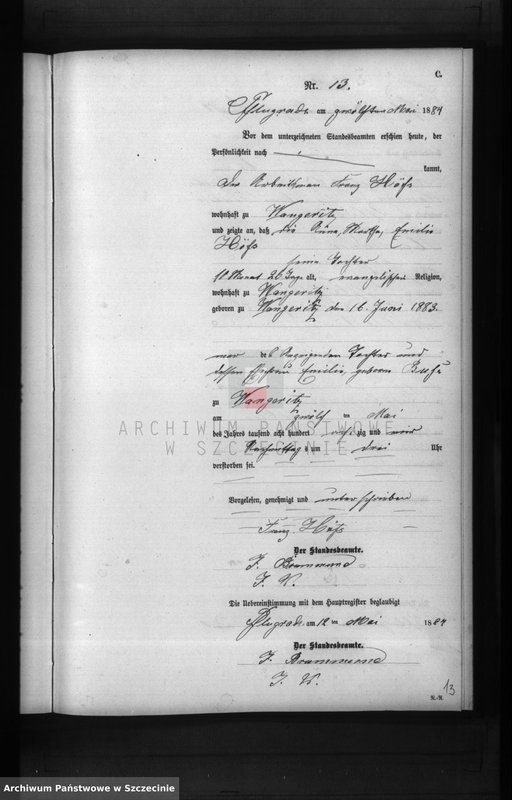 C.
Nr. 13.
Pflugrade am zwölften Mai 1884
Vor dem unterzeichneten Standesbeamten erschien heute, der
Persönlichkeit nach
kannt,
der Arbeitsmann Franz Höfs
wohnhaft zu Wangeritz
und zeigte an, daß die Martha, Emilie
Höfs
seine Tochter
11 Monat 26 Tage alt, evangelischer Religion,
wohnhaft zu Wangeritz
geboren zu Wangeritz den 16. Juni 1883.
war des Anzeigenden Tochter und
dessen Ehefrau Emilie, geborne
zu Wangeritz
am zwölf ten Mai
des Jahres tausend acht hundert achtzig und vier
Nachmittag s um drei Uhr
verstorben sei.
Vorgelesen, genehmigt und unterschrieben
Franz Höfs
Der Standesbeamte.
J. V.
Die Uebereinstimmung mit dem Hauptregister beglaubigt
Pflugrade am 12 ten Mai 1884
Der Standesbeamte.
J. V.
13
ARCHIWUM PAŃSTWOWE
W SZCZECINIE
Archiwum Państwowe w Szczecinie